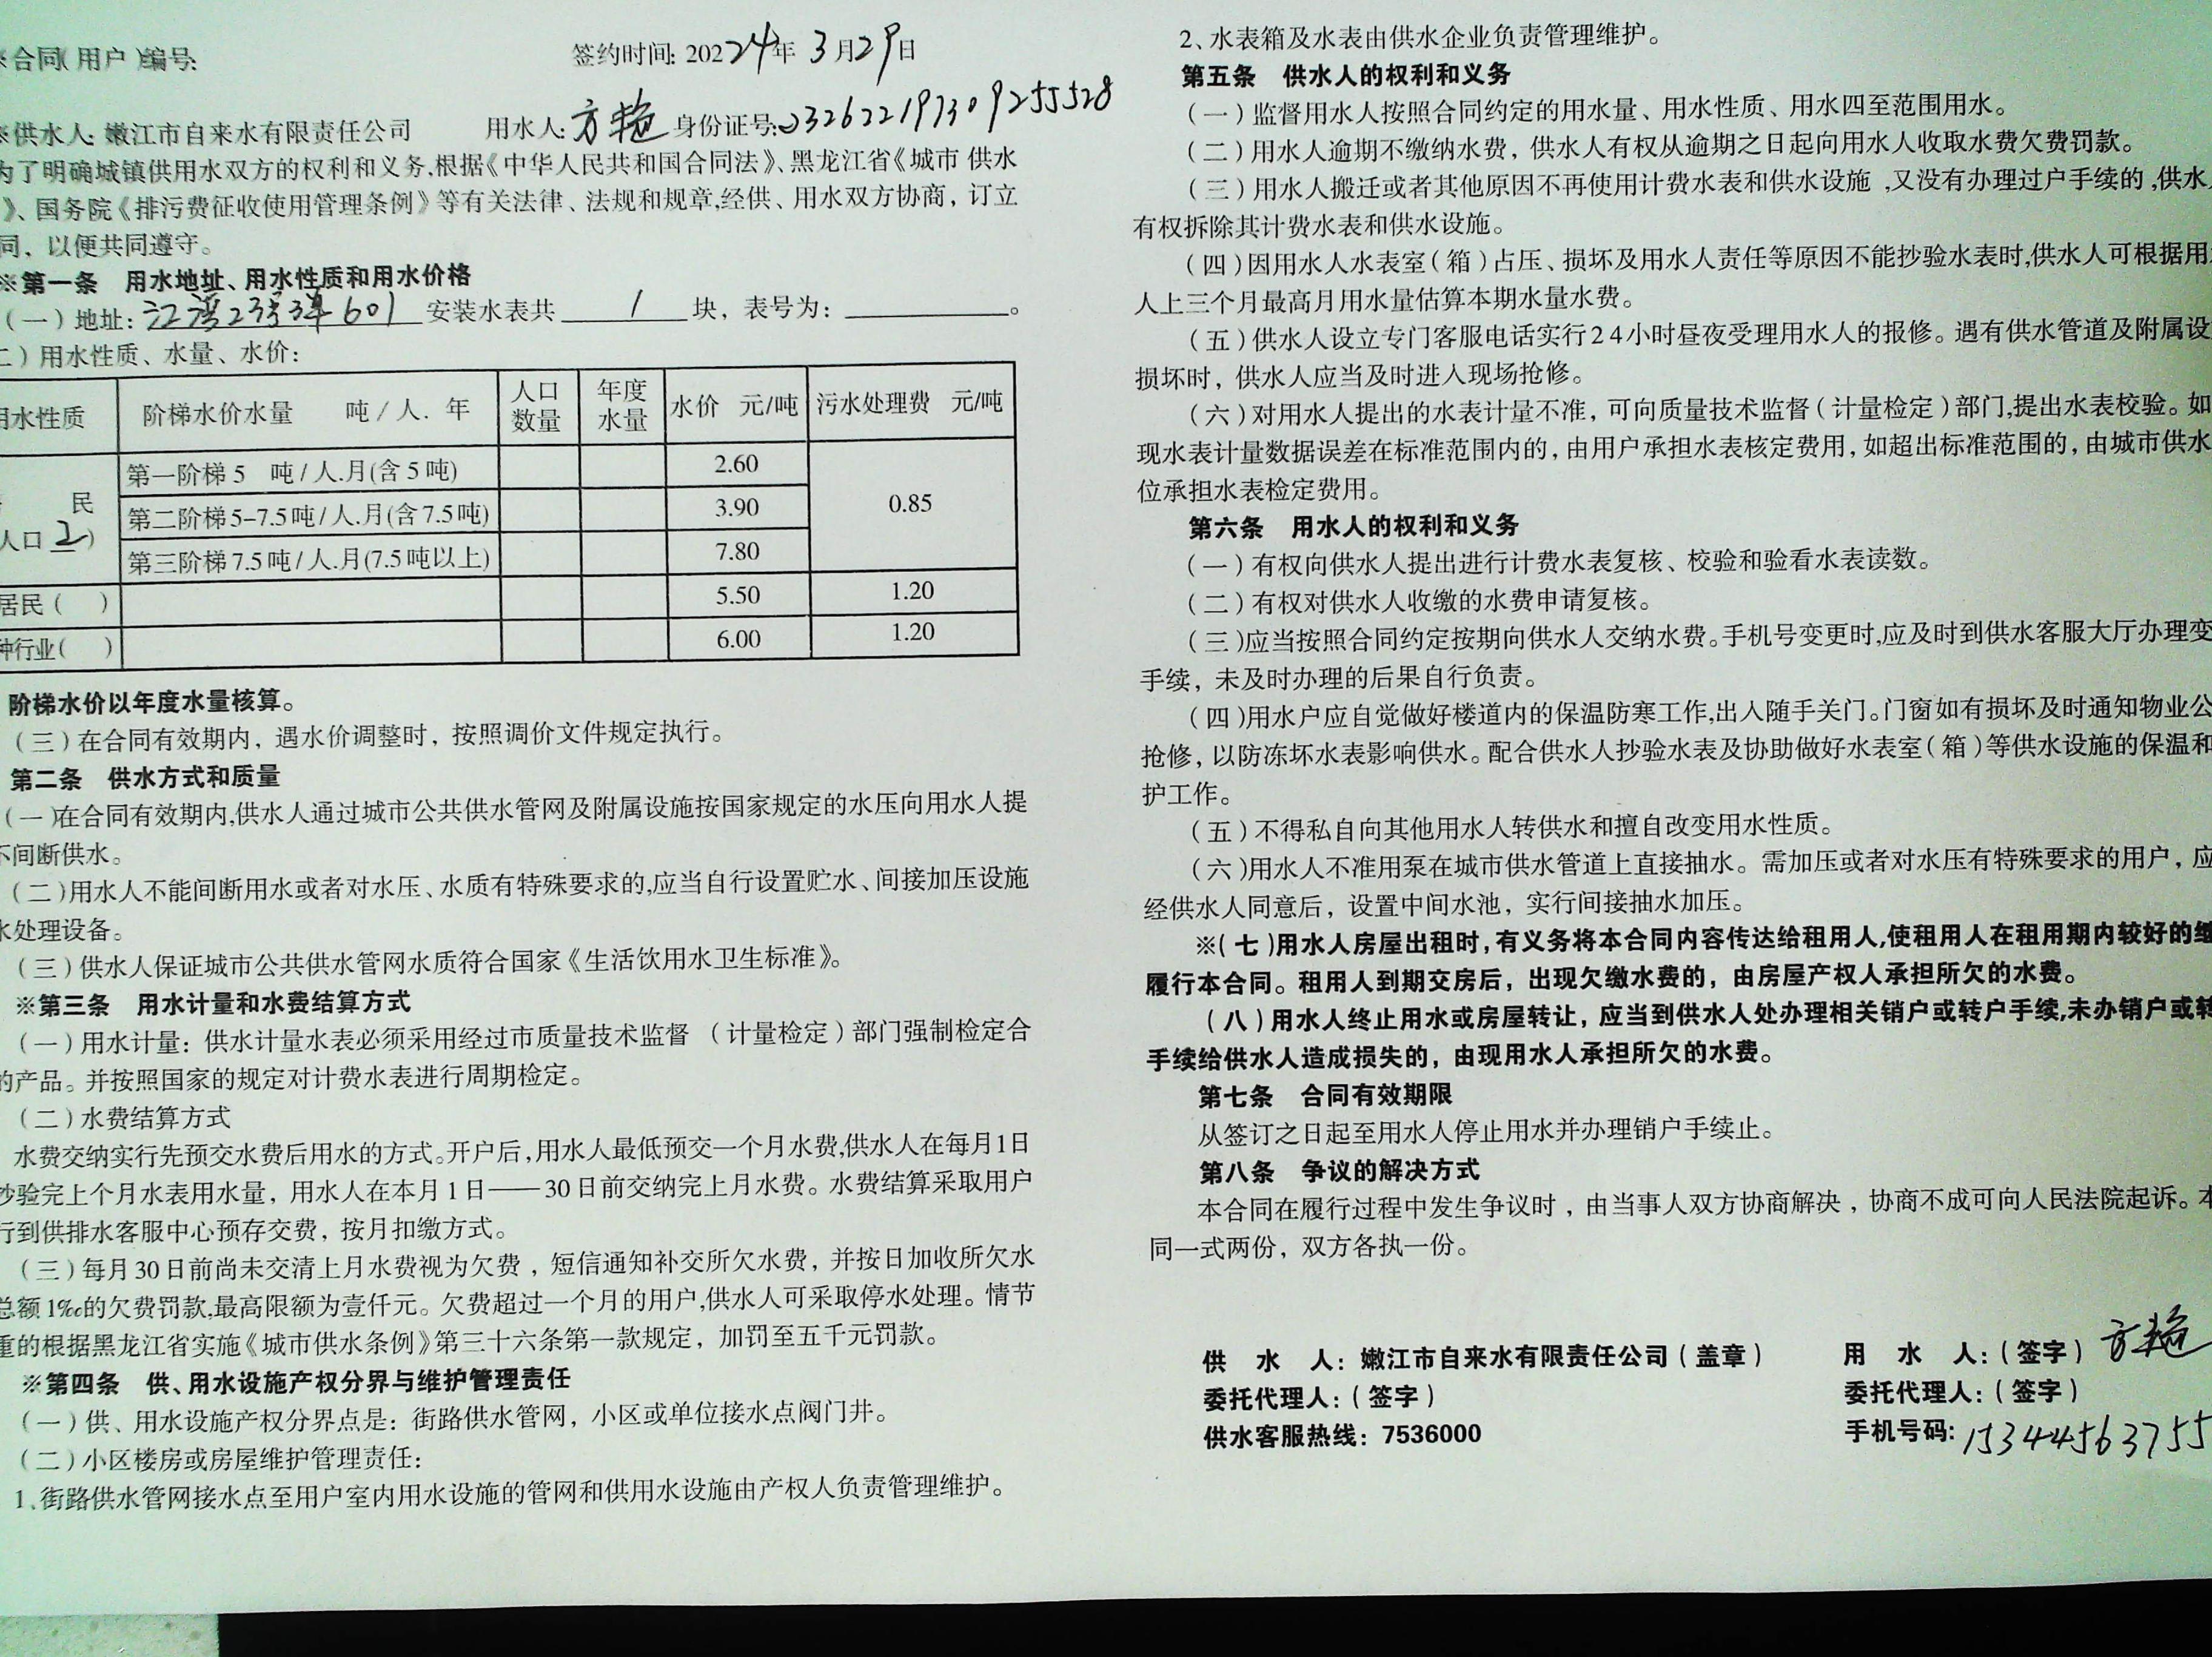 ※合同(用户)编号:
签约时间: 2024年 3月29日
※供水人: 嫩江市自来水有限责任公司 用水人: 方艳 身份证号:
为了明确城镇供用水双方的权利和义务,根据《中华人民共和国合同法》、黑龙江省《城市 供水
》、国务院《排污费征收使用管理条例》等有关法律、法规和规章,经供、用水双方协商，订立
同，以便共同遵守。
※第一条 用水地址、用水性质和用水价格
(一)地址: 江湾2号3单601 安装水表共 1 块，表号为: 。
二)用水性质、水量、水价:
用水性质 阶梯水价水量 吨/人.年 人口数量 年度水量 水价 元/吨 污水处理费 元/吨
民 人口 2)
第一阶梯 5 吨/人.月(含5吨) 2.60 0.85
第二阶梯5-7.5吨/人.月(含7.5吨) 3.90
第三阶梯7.5吨/人.月(7.5吨以上) 7.80
居民( ) 5.50 1.20
种行业( ) 6.00 1.20
阶梯水价以年度水量核算。
(三)在合同有效期内，遇水价调整时，按照调价文件规定执行。
第二条 供水方式和质量
(一)在合同有效期内,供水人通过城市公共供水管网及附属设施按国家规定的水压向用水人提
不间断供水。
(二)用水人不能间断用水或者对水压、水质有特殊要求的,应当自行设置贮水、间接加压设施
水处理设备。
(三)供水人保证城市公共供水管网水质符合国家《生活饮用水卫生标准》。
※第三条 用水计量和水费结算方式
(一)用水计量：供水计量水表必须采用经过市质量技术监督 (计量检定)部门强制检定合
的产品。并按照国家的规定对计费水表进行周期检定。
(二)水费结算方式
水费交纳实行先预交水费后用水的方式。开户后,用水人最低预交一个月水费,供水人在每月1日
抄验完上个月水表用水量，用水人在本月1日——30日前交纳完上月水费。水费结算采取用户
行到供排水客服中心预存交费，按月扣缴方式。
(三)每月30日前尚未交清上月水费视为欠费，短信通知补交所欠水费，并按日加收所欠水
总额1‰的欠费罚款,最高限额为壹仟元。欠费超过一个月的用户,供水人可采取停水处理。情节
重的根据黑龙江省实施《城市供水条例》第三十六条第一款规定，加罚至五千元罚款。
※第四条 供、用水设施产权分界与维护管理责任
(一)供、用水设施产权分界点是：街路供水管网，小区或单位接水点阀门井。
(二)小区楼房或房屋维护管理责任:
1、街路供水管网接水点至用户室内用水设施的管网和供用水设施由产权人负责管理维护。
2、水表箱及水表由供水企业负责管理维护。
第五条 供水人的权利和义务
(一)监督用水人按照合同约定的用水量、用水性质、用水四至范围用水。
(二)用水人逾期不缴纳水费，供水人有权从逾期之日起向用水人收取水费欠费罚款。
(三)用水人搬迁或者其他原因不再使用计费水表和供水设施,又没有办理过户手续的,供水
有权拆除其计费水表和供水设施。
(四)因用水人水表室(箱)占压、损坏及用水人责任等原因不能抄验水表时,供水人可根据用
人上三个月最高月用水量估算本期水量水费。
(五)供水人设立专门客服电话实行24小时昼夜受理用水人的报修。遇有供水管道及附属设
损坏时，供水人应当及时进入现场抢修。
(六)对用水人提出的水表计量不准，可向质量技术监督(计量检定)部门,提出水表校验。如
现水表计量数据误差在标准范围内的，由用户承担水表核定费用，如超出标准范围的，由城市供水
位承担水表检定费用。
第六条 用水人的权利和义务
(一)有权向供水人提出进行计费水表复核、校验和验看水表读数。
(二)有权对供水人收缴的水费申请复核。
(三)应当按照合同约定按期向供水人交纳水费。手机号变更时,应及时到供水客服大厅办理变
手续，未及时办理的后果自行负责。
(四)用水户应自觉做好楼道内的保温防寒工作,出入随手关门。门窗如有损坏及时通知物业公
抢修，以防冻坏水表影响供水。配合供水人抄验水表及协助做好水表室(箱)等供水设施的保温和
护工作。
(五)不得私自向其他用水人转供水和擅自改变用水性质。
(六)用水人不准用泵在城市供水管道上直接抽水。需加压或者对水压有特殊要求的用户，应
经供水人同意后，设置中间水池，实行间接抽水加压。
※(七)用水人房屋出租时,有义务将本合同内容传达给租用人,使租用人在租用期内较好的继
履行本合同。租用人到期交房后，出现欠缴水费的，由房屋产权人承担所欠的水费。
(八)用水人终止用水或房屋转让，应当到供水人处办理相关销户或转户手续,未办销户或转
手续给供水人造成损失的，由现用水人承担所欠的水费。
第七条 合同有效期限
从签订之日起至用水人停止用水并办理销户手续止。
第八条 争议的解决方式
本合同在履行过程中发生争议时，由当事人双方协商解决，协商不成可向人民法院起诉。本
同一式两份，双方各执一份。
供 水 人：嫩江市自来水有限责任公司(盖章) 用 水 人：(签字) 方艳
委托代理人：(签字) 委托代理人：(签字)
供水客服热线：7536000 手机号码: 15344563755